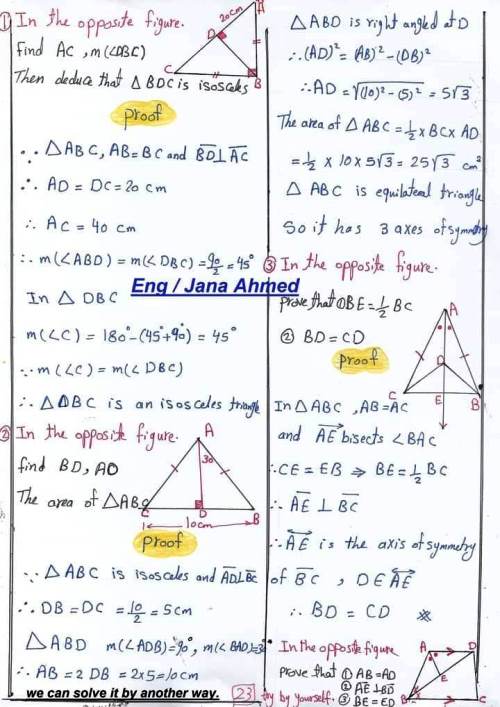 ① In the opposite figure.
find AC, m(∠DBC)
Then deduce that △BDC is isosceles
A
20cm
D
C
B
proof
∵ △ABC, AB=BC and BD⊥AC
∴ AD = DC = 20 cm
∴ AC = 40 cm
∴ m(∠ABD) = m(∠DBC) = 90/2 = 45°
In △ DBC
m(∠C) = 180° - (45°+90°) = 45°
∵ m(∠C) = m(∠DBC)
∴ △DBC is an isosceles triangle
② In the opposite figure.
find BD, AD
The area of △ABC
A
30
C
D
B
10cm
proof
∵ △ABC is isosceles and AD⊥BC
∴ DB = DC = 10/2 = 5cm
△ ABD m(∠ADB)=90°, m(∠BAD)=3°
∴ AB = 2 DB = 2x5 = 10cm
we can solve it by another way.
△ ABD is right angled at D
∴ (AD)² = (AB)² - (DB)²
∴ AD = √(10)² - (5)² = 5√3
The area of △ABC = 1/2 x BC x AD
= 1/2 x 10 x 5√3 = 25√3 cm²
△ ABC is equilateral triangle
So it has 3 axes of symmetry
③ In the opposite figure.
Eng / Jana Ahmed
prove that ① BE = 1/2 BC
② BD = CD
A
D
C
E
B
proof
In △ABC, AB = AC
and AE bisects ∠BAC
∴ CE = EB ⇒ BE = 1/2 BC
∴ AE ⊥ BC
∴ AE is the axis of symmetry
of BC, D∈AE
∴ BD = CD
In the opposite figure
prove that ① AB = AD
② AE ⊥ BD
try by yourself. ③ BE = ED
A
D
E
B
C
23